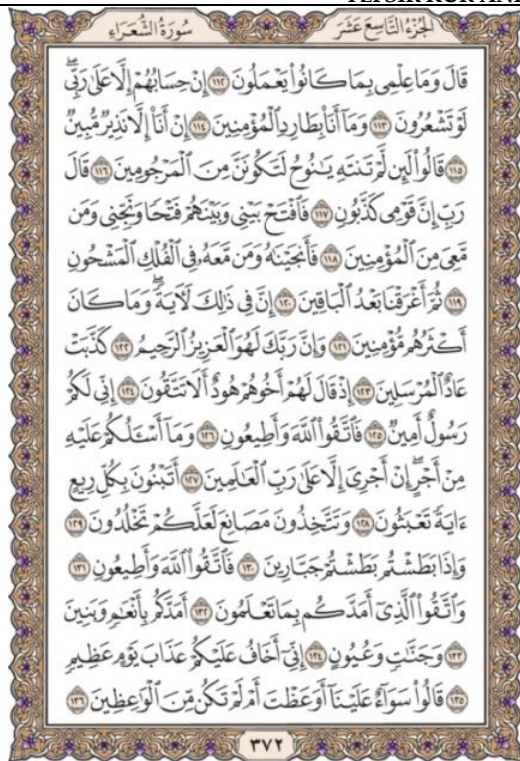 TEFSIR KUR'ANI
الجُزْءُ التَّاسِعَ عَشَرَ سُورَةُ الشُّعَرَاءِ
قَالَ وَمَا عِلْمِى بِمَا كَانُوا۟ يَعْمَلُونَ ١١٢ إِنْ حِسَابُهُمْ إِلَّا عَلَىٰ رَبِّىۖ
لَوْ تَشْعُرُونَ ١١٣ وَمَآ أَنَا۠ بِطَارِدِ ٱلْمُؤْمِنِينَ ١١٤ إِنْ أَنَا۠ إِلَّا نَذِيرٌ مُّبِينٌ
١١٥ قَالُوا۟ لَئِن لَّمْ تَنتَهِ يَـٰنُوحُ لَتَكُونَنَّ مِنَ ٱلْمَرْجُومِينَ ١١٦ قَالَ
رَبِّ إِنَّ قَوْمِى كَذَّبُونِ ١١٧ فَٱفْتَحْ بَيْنِى وَبَيْنَهُمْ فَتْحًا وَنَجِّنِى وَمَن
مَّعِىَ مِنَ ٱلْمُؤْمِنِينَ ١١٨ فَأَنجَيْنَـٰهُ وَمَن مَّعَهُۥ فِى ٱلْفُلْكِ ٱلْمَشْحُونِ
١١٩ ثُمَّ أَغْرَقْنَا بَعْدُ ٱلْبَاقِينَ ١٢٠ إِنَّ فِى ذَٰلِكَ لَـَٔايَةًۖ وَمَا كَانَ
أَكْثَرُهُم مُّؤْمِنِينَ ١٢١ وَإِنَّ رَبَّكَ لَهُوَ ٱلْعَزِيزُ ٱلرَّحِيمُ ١٢٢ كَذَّبَتْ
عَادٌ ٱلْمُرْسَلِينَ ١٢٣ إِذْ قَالَ لَهُمْ أَخُوهُمْ هُودٌ أَلَا تَتَّقُونَ ١٢٤ إِنِّى لَكُمْ
رَسُولٌ أَمِينٌ ١٢٥ فَٱتَّقُوا۟ ٱللَّهَ وَأَطِيعُونِ ١٢٦ وَمَآ أَسْـَٔلُكُمْ عَلَيْهِ
مِنْ أَجْرٍۖ إِنْ أَجْرِىَ إِلَّا عَلَىٰ رَبِّ ٱلْعَـٰلَمِينَ ١٢٧ أَتَبْنُونَ بِكُلِّ رِيعٍ
ءَايَةً تَعْبَثُونَ ١٢٨ وَتَتَّخِذُونَ مَصَانِعَ لَعَلَّكُمْ تَخْلُدُونَ ١٢٩
وَإِذَا بَطَشْتُم بَطَشْتُمْ جَبَّارِينَ ١٣٠ فَٱتَّقُوا۟ ٱللَّهَ وَأَطِيعُونِ ١٣١
وَٱتَّقُوا۟ ٱلَّذِىٓ أَمَدَّكُم بِمَا تَعْلَمُونَ ١٣٢ أَمَدَّكُم بِأَنْعَـٰمٍ وَبَنِينَ
١٣٣ وَجَنَّـٰتٍ وَعُيُونٍ ١٣٤ إِنِّىٓ أَخَافُ عَلَيْكُمْ عَذَابَ يَوْمٍ عَظِيمٍ
١٣٥ قَالُوا۟ سَوَآءٌ عَلَيْنَآ أَوَعَظْتَ أَمْ لَمْ تَكُن مِّنَ ٱلْوَٰعِظِينَ ١٣٦
٣٧٢